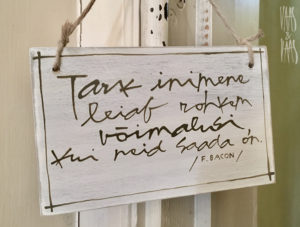 Tark inimene
leiab rohkem
võimalusi,
kui neid saada on.
/F. BACON/
VAAS
&
PAAS